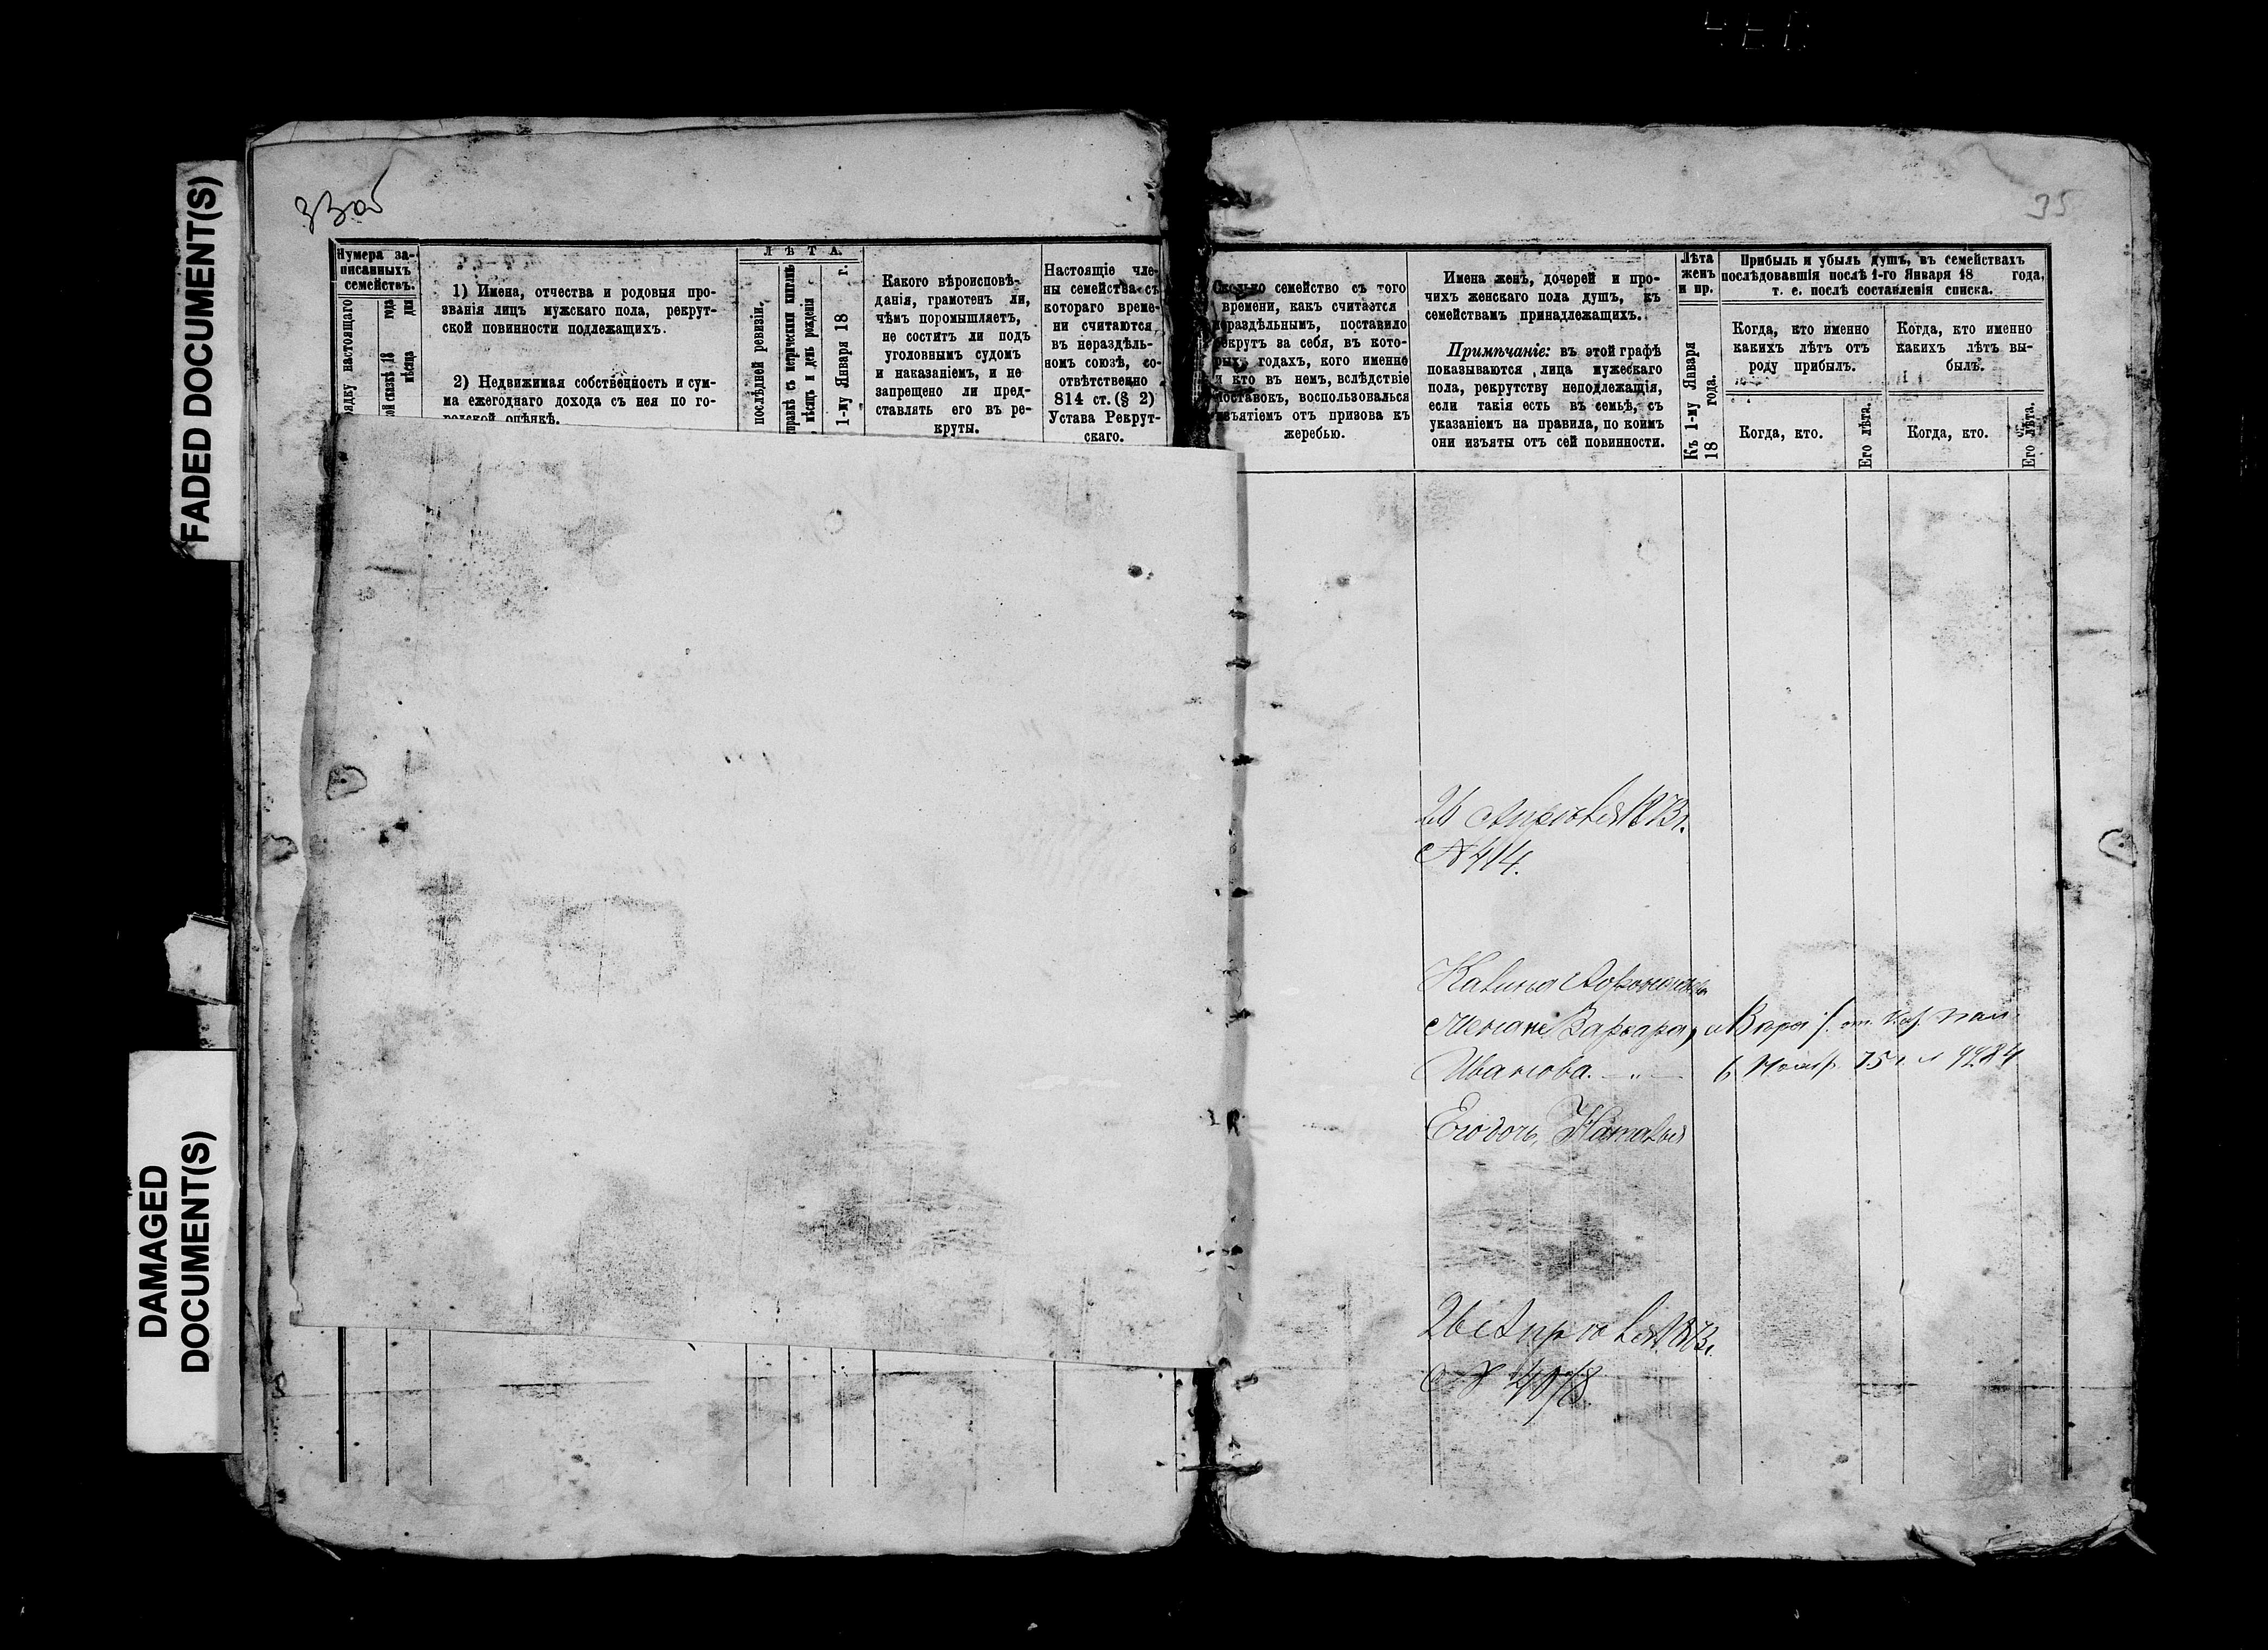 FADED DOCUMENT(S)
DAMAGED
DOCUMENT(S)
33об
Нумера за-
писанныхъ
семействъ.
настоящаго
сказкѣ 18 года
мѣсяца дня
1) Имена, отчества и родовыя про-
званія лицъ мужскаго пола, рекрут-
ской повинности подлежащихъ.
2) Недвижимая собственность и сум-
ма ежегоднаго дохода съ нея по го-
родской оцѣнкѣ.
ЛѢТА.
послѣдней ревизіи,
съ метрическими книгами
мѣсяцъ и день рожденія
1-му Января 18 г.
Какого вѣроисповѣ-
данія, грамотенъ ли,
чѣмъ поромышляетъ,
не соститъ ли подъ
уголовнымъ судомъ
и наказаніемъ, и не
запрещено ли пред-
ставлять его въ ре-
круты.
Настоящіе чле-
ны семейства съ
котораго време-
ни считаются
въ нераздѣль-
номъ союзѣ, со-
отвѣтственно
814 ст. (§ 2)
Устава Рекрут-
скаго.
35
Сколько семейство съ того
времени, какъ считается
нераздѣльнымъ, поставило
рекрутъ за себя, въ кото-
рыхъ годахъ, кого именно
и кто въ немъ, вслѣдствіе
поставокъ, воспользовался
изъятіемъ отъ призова къ
жеребью.
Имена женъ, дочерей и про-
чихъ женскаго пола душъ, къ
семействамъ принадлежащихъ.
Примѣчаніе: въ этой графѣ
показываются лица мужескаго
пола, рекрутству неподлежащія,
если такія есть въ семьѣ, съ
указаніемъ на правила, по коимъ
они изъяты отъ сей повинности.
Лѣта
женъ
и пр.
Къ 1-му Января
18 года.
Прибыль и убыль душъ, въ семействахъ
послѣдовавшія послѣ 1-го Января 18 года,
т. е. послѣ составленія списка.
Когда, кто именно
какихъ лѣтъ отъ
роду прибылъ.
Когда, кто именно
какихъ лѣтъ вы-
былъ.
Когда, кто.
Его лѣта.
Когда, кто.
Его лѣта.
26 Апрѣля 1873г.
№ 414.
Варвара,
Иванова.
Его дочь, Наталья
26 Апрѣля 1873г.